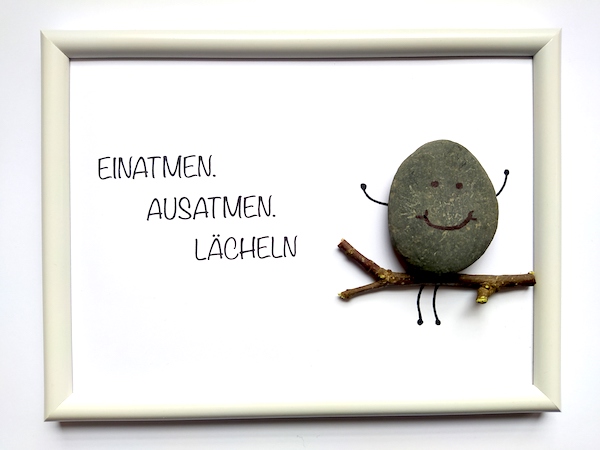 EINATMEN.
AUSATMEN.
LÄCHELN